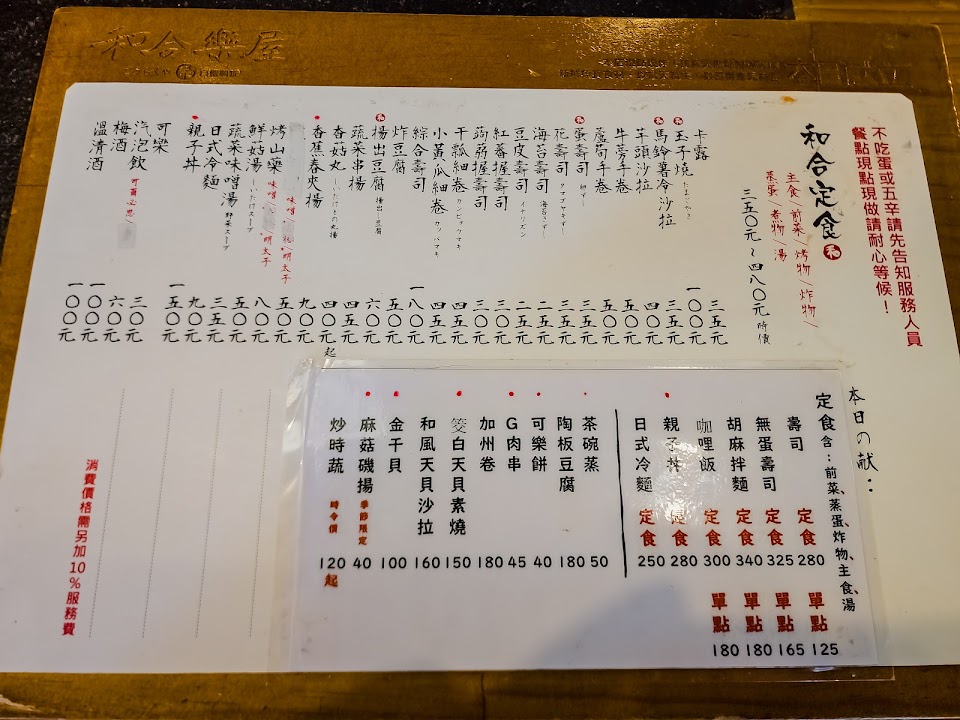 和合樂屋
不吃蛋或五辛請先告知服務人員
餐點現點現做請耐心等候！
和合定食 和
主食/前菜/烤物/炸物/
蒸蛋/煮物/湯
三五〇元～四八〇元 時價
卡露 三五元
玉子燒 たまごやき 一〇〇元
馬鈴薯冷沙拉 三五元
芋頭沙拉 四〇元
牛蒡手卷 五〇元
蘆筍手卷 五〇元
蛋壽司 三五元
花壽司 三五元
海苔壽司 二五元
豆皮壽司 イナリズシ 二五元
紅蕃握壽司 三〇元
蒟蒻握壽司 三〇元
干瓢細卷 カンピョウマキ 四五元
小黃瓜細卷 カッパマキ 四五元
綜合壽司 一八〇元
炸豆腐 五〇元
揚出豆腐 揚出し豆腐 六〇元
蔬菜串揚 四五元
香菇丸 しいたけの丸揚 四〇元起
香蕉春夾揚 九〇元
烤山藥 味噌/ /明太子 五〇元
味噌/ /明太子 八〇元
鮮菇湯 しいたけスープ 五〇元
蔬菜味噌湯 野菜スープ 三五元
日式冷麵 九〇元
親子丼 一五〇元
可樂 三〇元
汽泡飲 可爾必思/ 六〇元
梅酒 一〇〇元
溫清酒 一〇〇元
消費價格需另加10%服務費
本日の献：
定食含：前菜、蒸蛋、炸物、主食、湯
壽司 定食 280 單點 125
無蛋壽司 定食 325 單點 165
胡麻拌麵 定食 340 單點 180
咖哩飯 定食 300 單點 180
親子丼 定食 280
日式冷麵 定食 250
茶碗蒸 50
陶板豆腐 180
可樂餅 40
G肉串 45
加州卷 180
筊白天貝素燒 150
和風天貝沙拉 160
金干貝 100
麻菇磯揚 季節限定 40
炒時蔬 時令價 120起